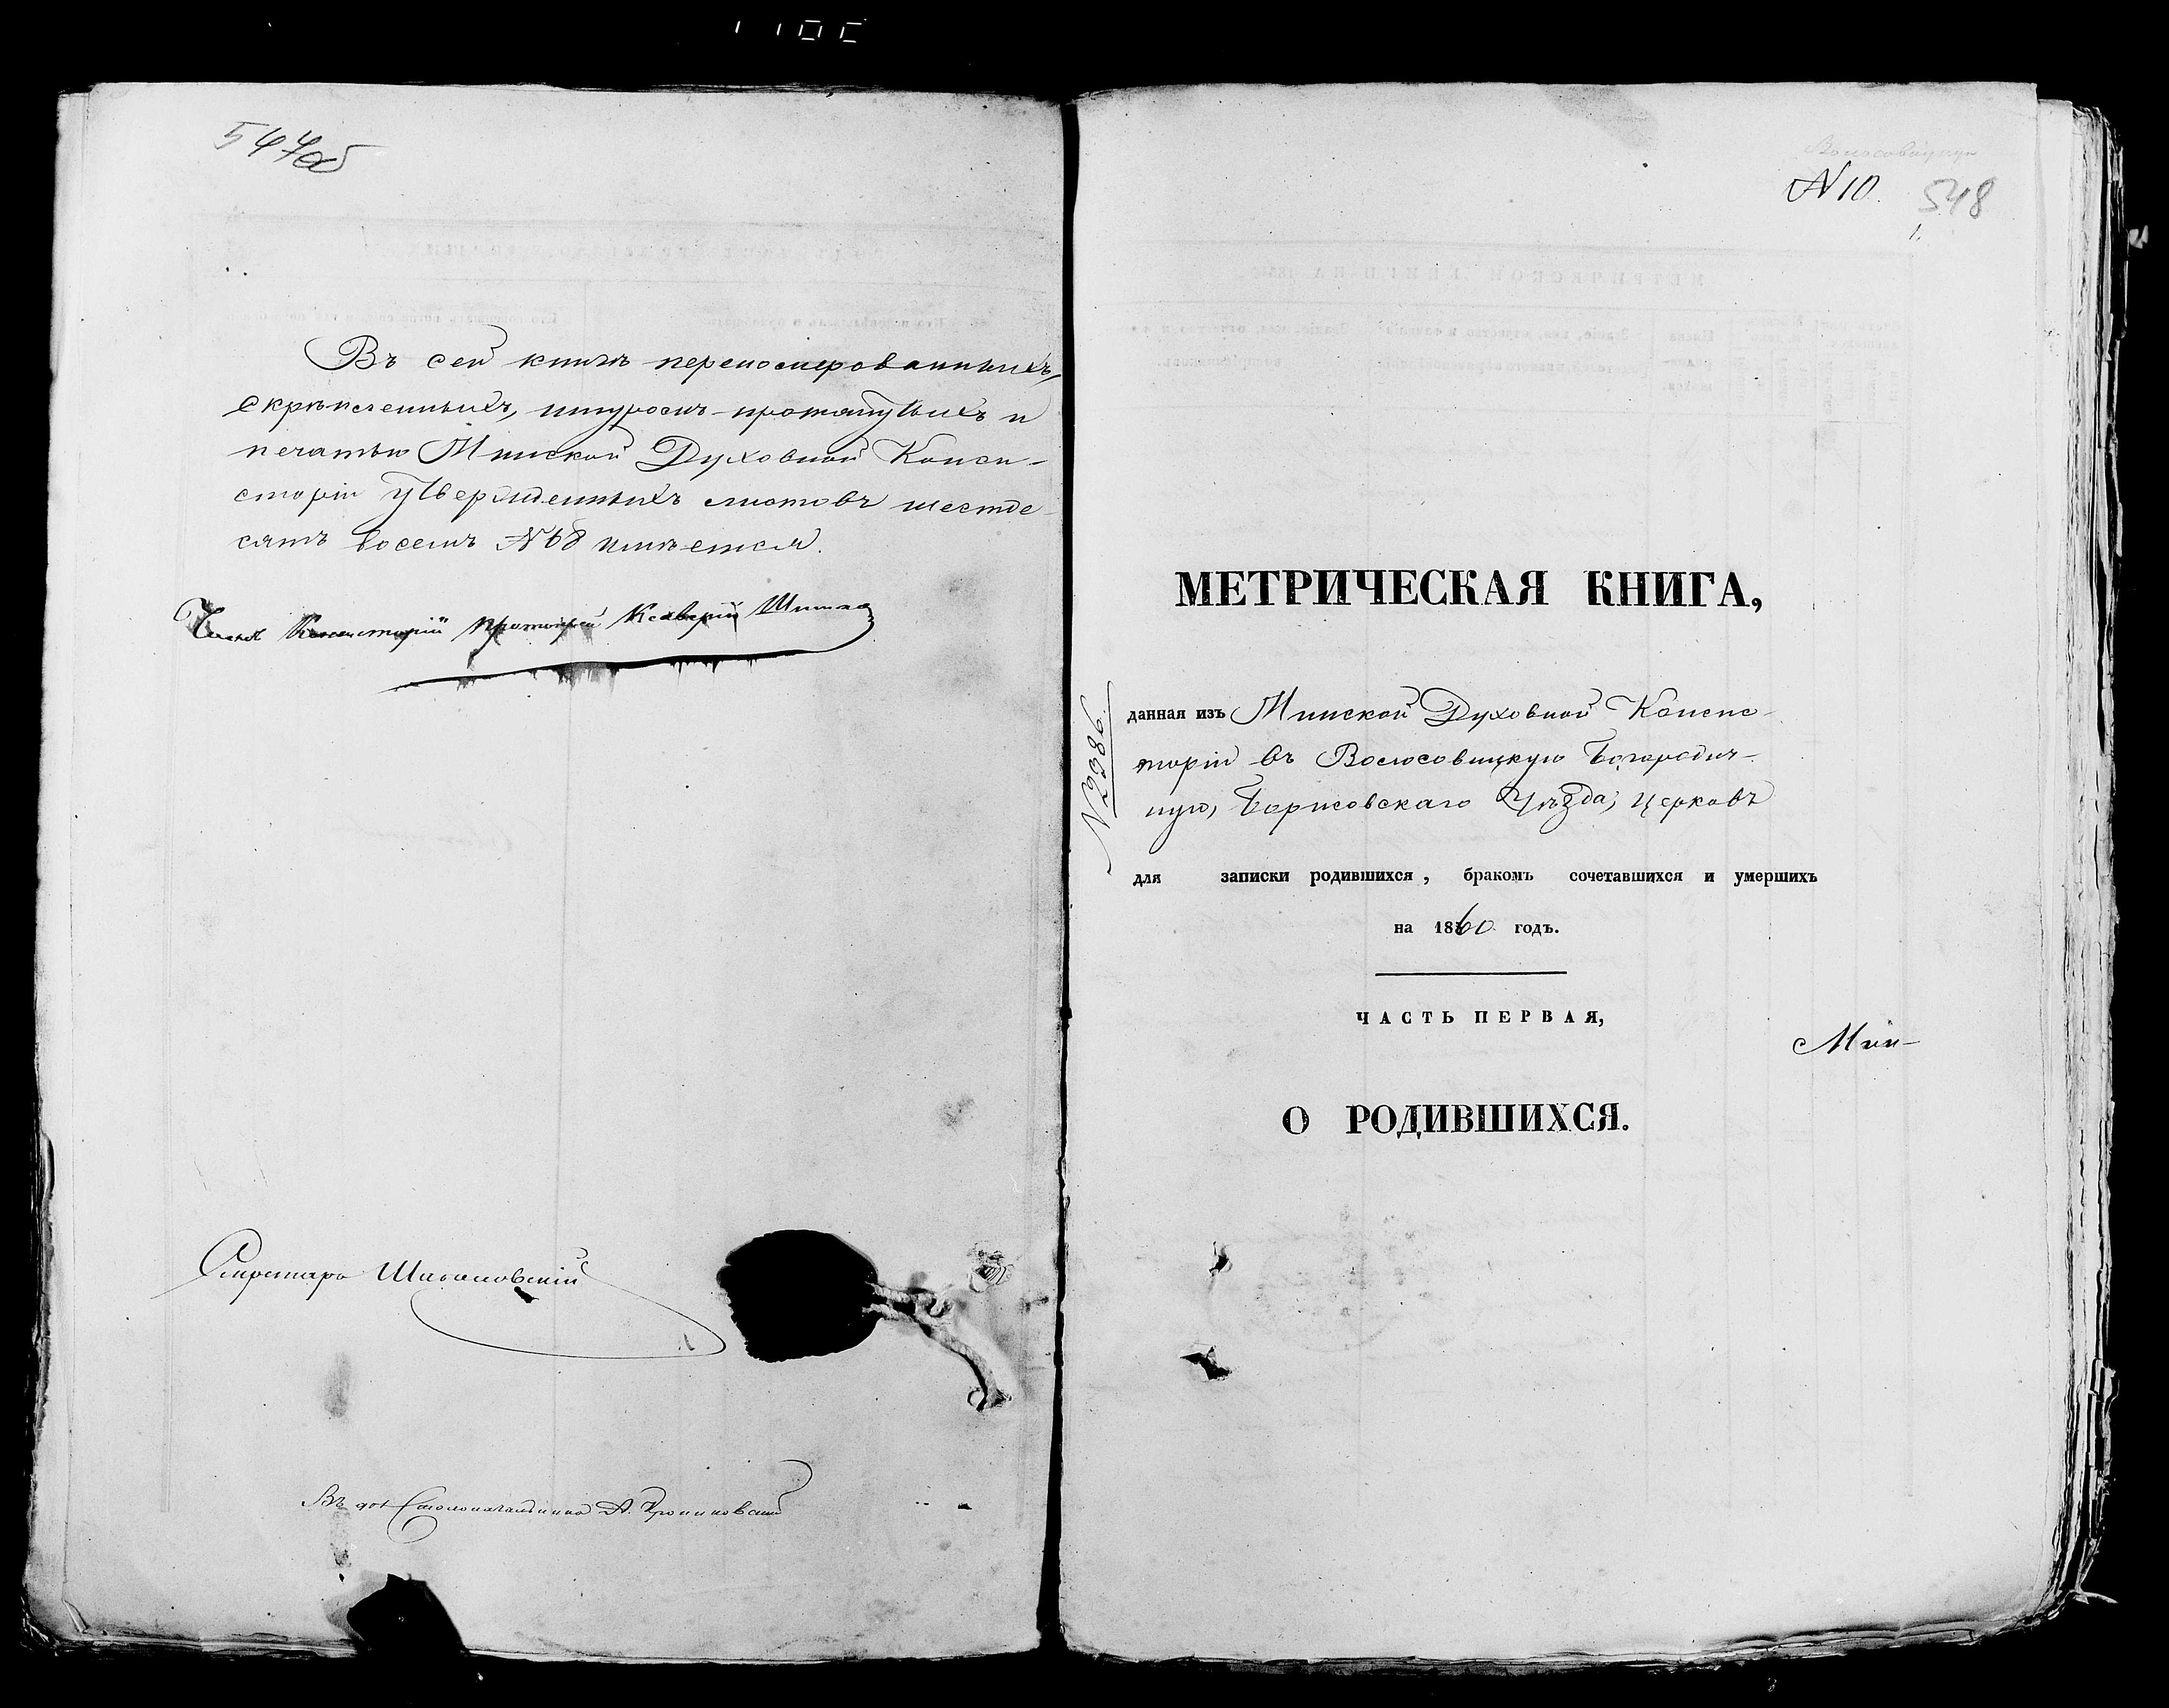 547об
Въ сей книгѣ перенумерованныхъ,
скрѣпленныхъ, шнуромъ протянутыхъ и
печатью Минской Духовной Конси-
сторіи утвержденныхъ листовъ шестьде-
сятъ восемь №68 имѣется.
Членъ Консисторіи Протоіерей Ксаверій
Секретарь
Столоначальника А.
Волосовицкую
№10. 548
1.
МЕТРИЧЕСКАЯ КНИГА,
№2386.
данная изъ Минской Духовной Консис-
торіи въ Волосовицкую Богородич-
ную, Борисовскаго Уѣзда, церковь
для записки родившихся, бракомъ сочетавшихся и умершихъ
на 1860 годъ.
ЧАСТЬ ПЕРВАЯ,
Мин-
О РОДИВШИХСЯ.